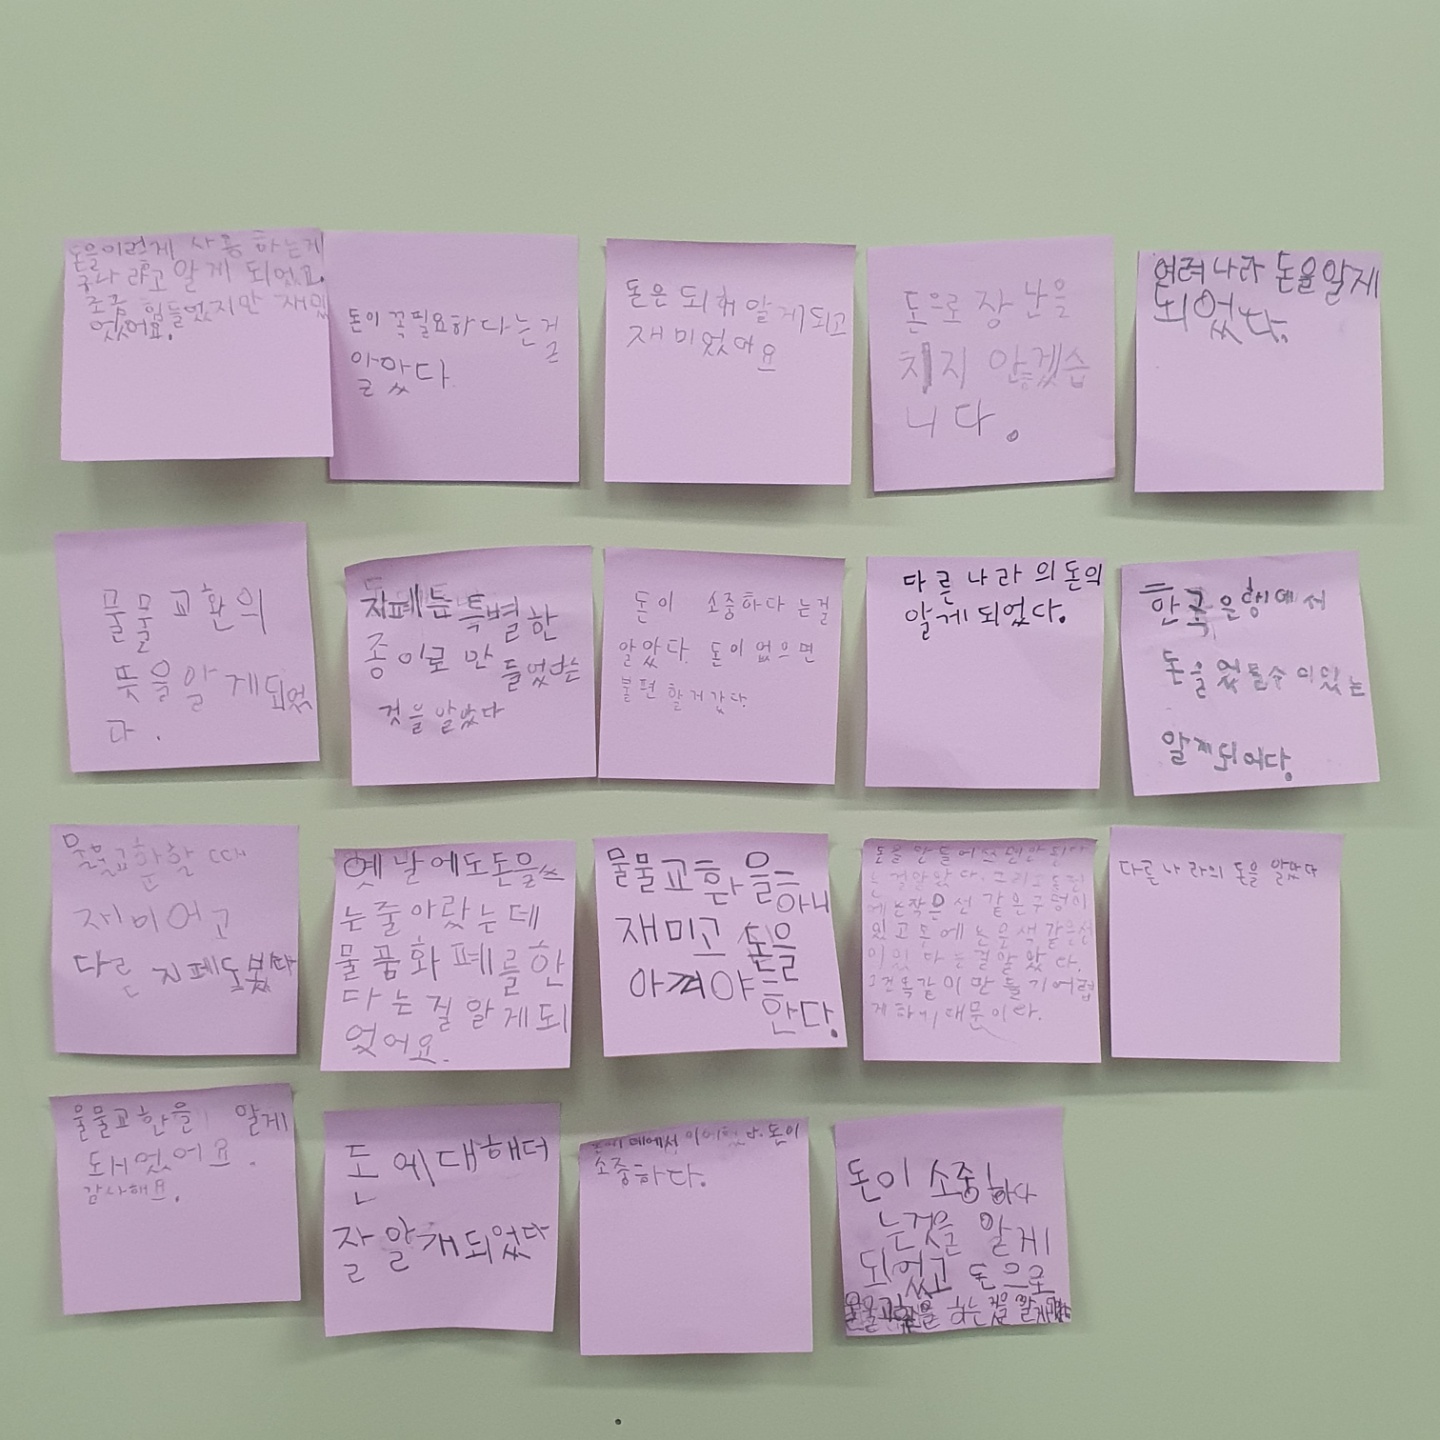 돈을이렇게 사용 하는게
구나 라고 알게 되었고.
조금 힘들었지만 재밌
었어요.
돈이 꼭필요하다는걸
알았다
돈은 되해 알게되고
재미있어요
돈으로 장난을
치지 않겠습
니다.
여려나라 돈을알게
되었다.
물물교환의
뜻을알게되었
다.
지폐를특별한
종이로 만들었다는
것을 알았다
돈이 소중하다 는걸
알았다. 돈이 없으면
불편할거 같다.
다른 나라의돈의
알게되었다.
한국은행에서
돈을
알게되어다.
물물교환할 때
재미어고
다른 지폐도봤다
옛날에도돈을쓰
는줄아랐는데
물품화폐를한
다는걸 알게되
었어요.
물물교환을하니
재미고 돈을
아껴야한다.
돈을만들어쓰면안된다
는걸알았다. 그리고 돈
에는작은 선 같은구멍이
있고 옆에는 은색 같은선
이있다는걸알았다.
그건똑같이만들기어렵
게하기때문이다.
다른나라의 돈을 알았다
물물교환을 알게
되었어요.
감사해요.
돈에대해더
잘알개되었다
돈이
소중하다.
돈이 소중하다
는것을 알게
되었고 돈으로
물물교환을 하는것을 알게